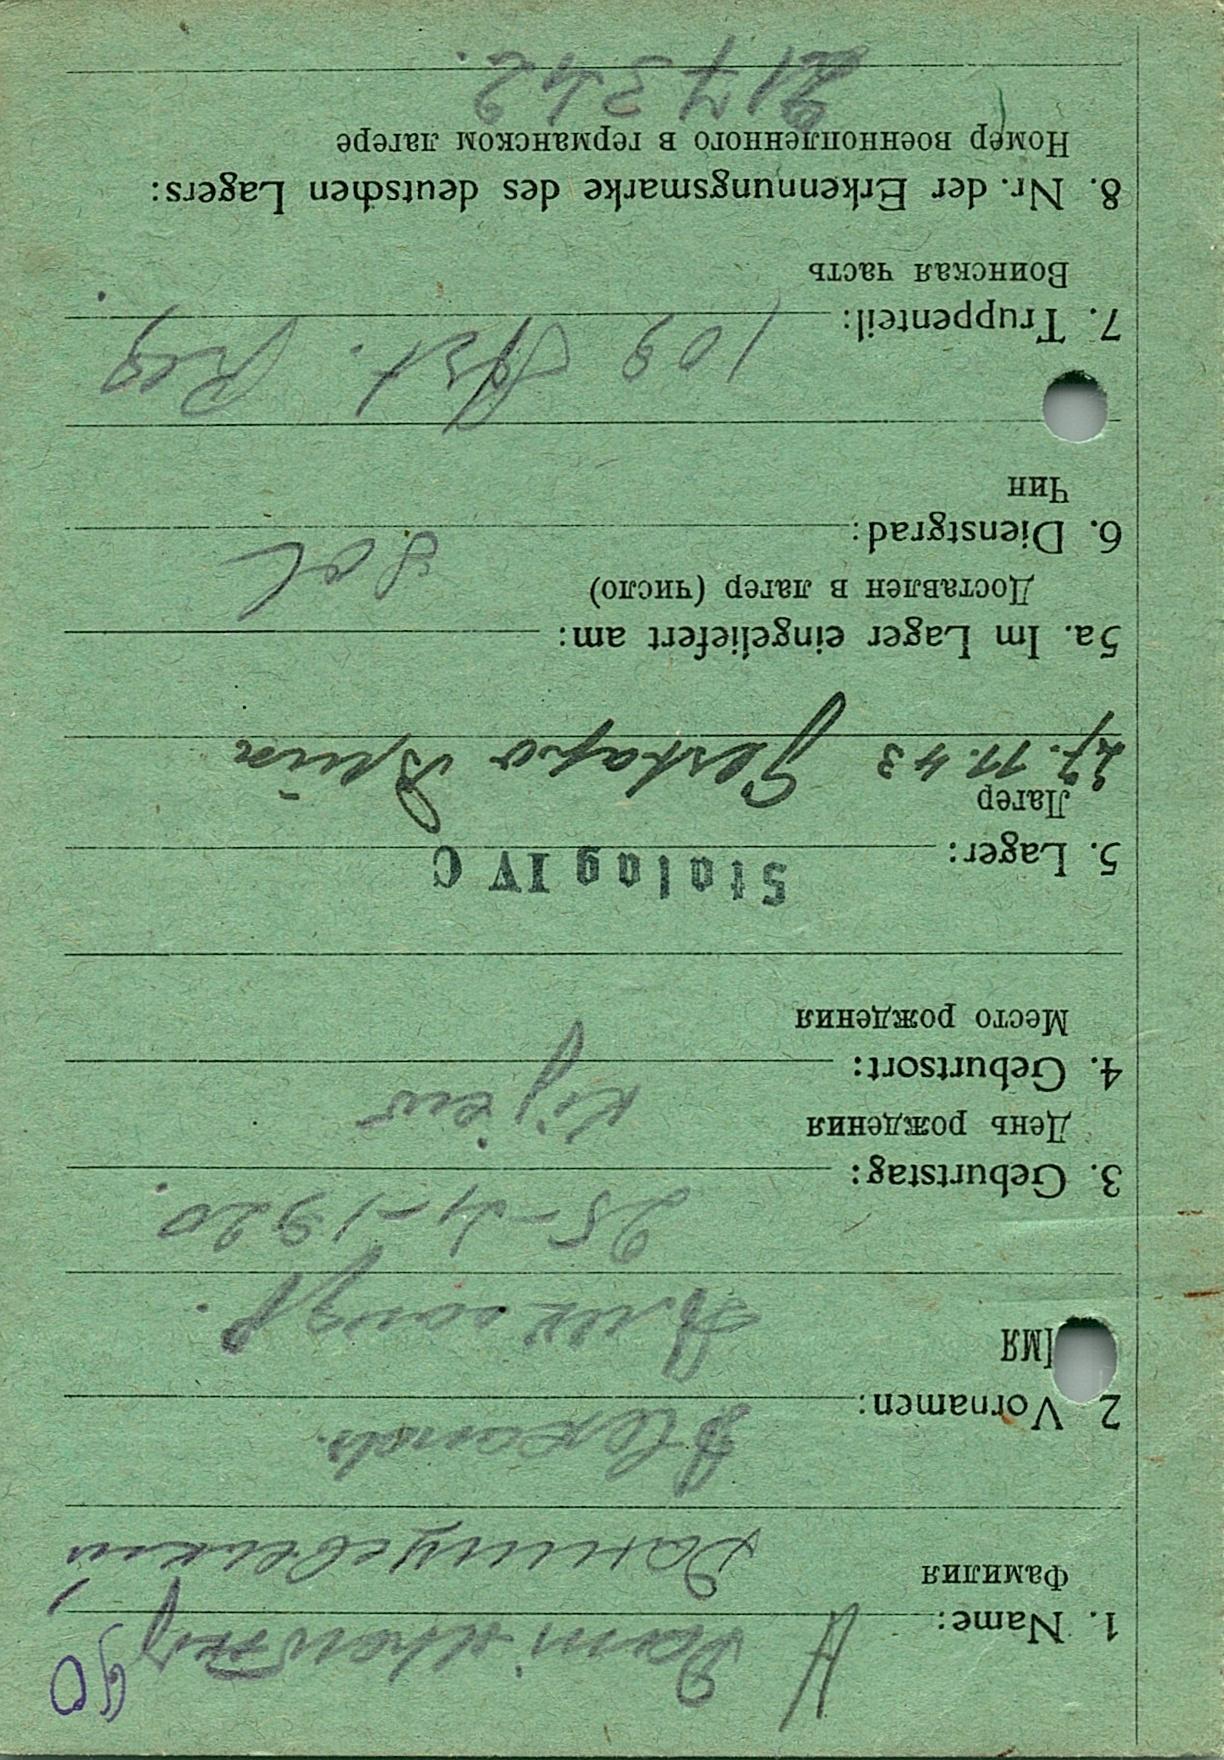 90
H
1. Name: Danischewskij
Фамилия Данишевский
2 Vornamen: Alexandr.
ИМЯ Александр.
3. Geburtstag: 25-4-1920.
День рождения
4. Geburtsort: Kijew
Место рождения
5. Lager: Stalag IV C
Лагер
27. 11. 43 Gestapo Brüx
5a. Im Lager eingeliefert am:
Доставлен в лагер (число)
6. Dienstgrad: Sol
Чин
7. Truppenteil: 109 Art. Reg.
Воинская часть
8. Nr. der Erkennungsmarke des deutschen Lagers:
Номер военнопленного в германском лагере
217342.